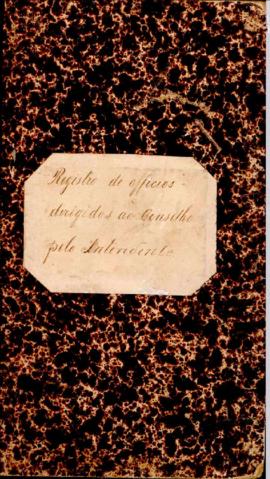 Registro de officios
dirigidos ao Conselho
pelo Intendente